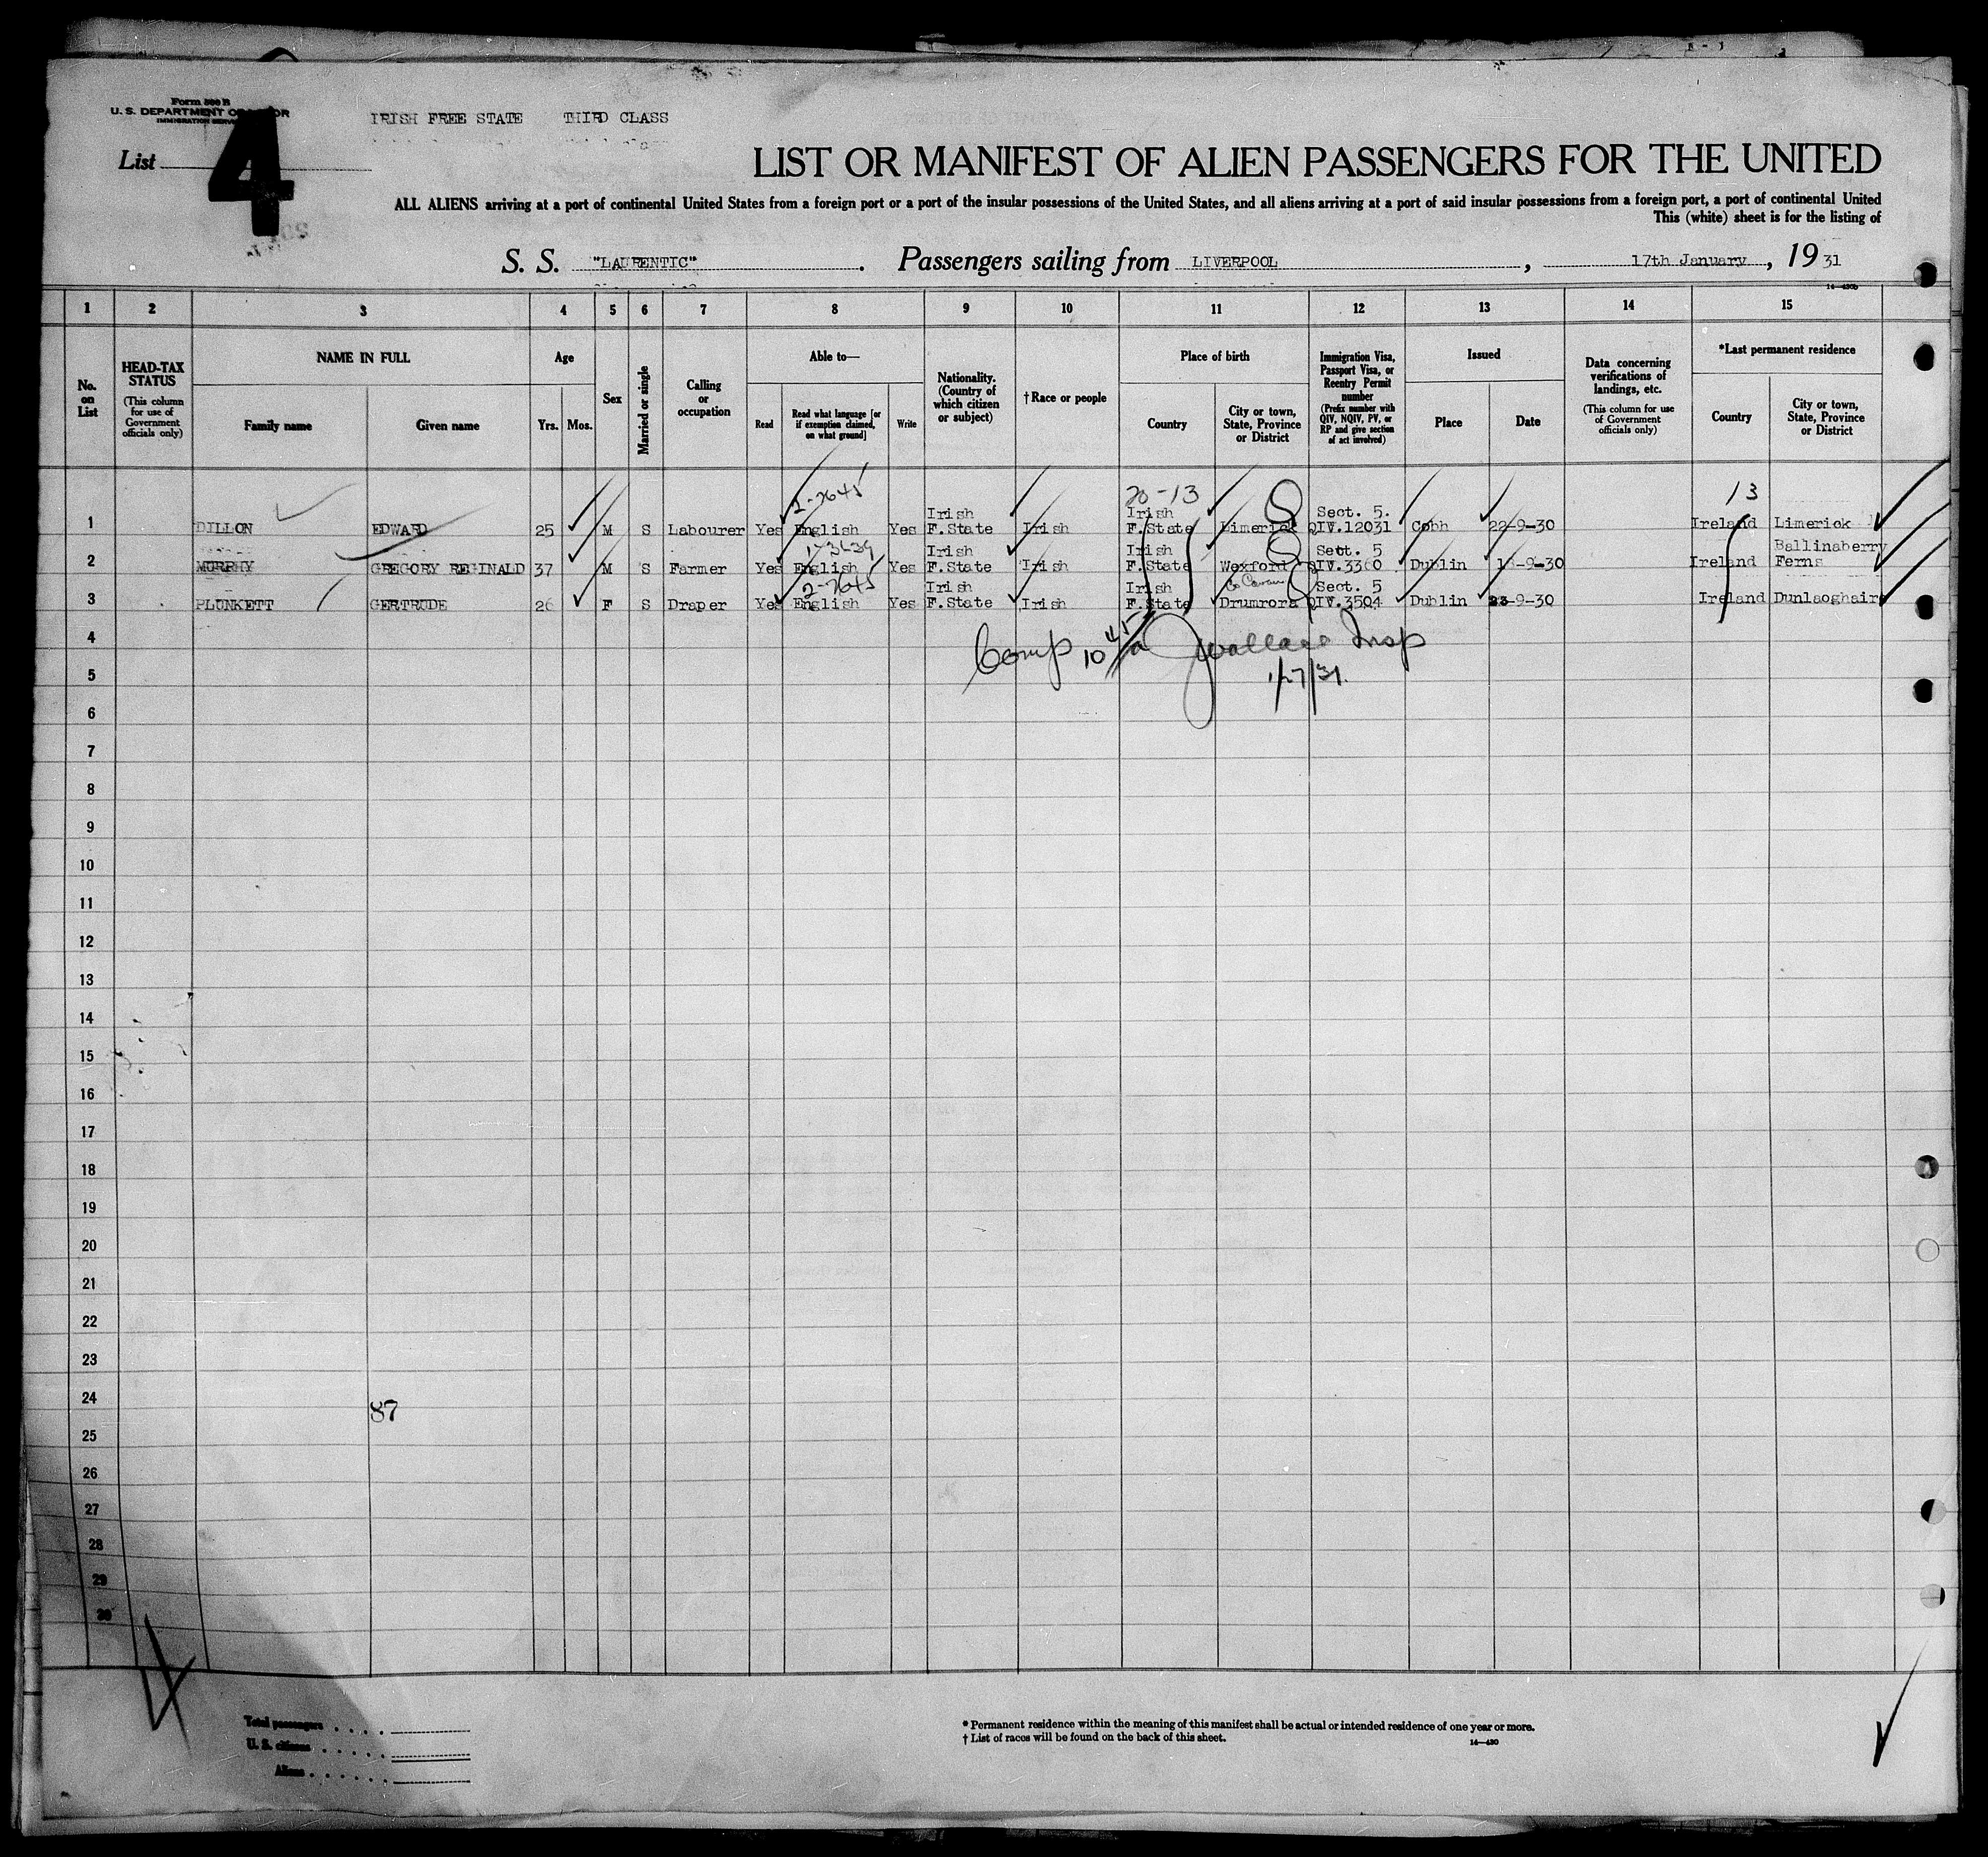 Form 500 B
U. S. DEPARTMENT OF LABOR
IMMIGRATION SERVICE
IRISH FREE STATE THIRD CLASS
List 4
LIST OR MANIFEST OF ALIEN PASSENGERS FOR THE UNITED
ALL ALIENS arriving at a port of continental United States from a foreign port or a port of the insular possessions of the United States, and all aliens arriving at a port of said insular possessions from a foreign port, a port of continental United
This (white) sheet is for the listing of
S. S. "LAURENTIC". Passengers sailing from LIVERPOOL, 17th January, 1931
1 2 3 4 5 6 7 8 9 10 11 12 13 14 15
No. on List
HEAD-TAX STATUS (This column for use of Government officials only)
NAME IN FULL Family name Given name
Age Yrs. Mos.
Sex
Married or single
Calling or occupation
Able to— Read Read what language [or if exemption claimed, on what ground] Write
Nationality. (Country of which citizen or subject)
†Race or people
Place of birth Country City or town, State, Province or District
Immigration Visa, Passport Visa, or Reentry Permit number (Prefix number with QIV, NQIV, PV, or RP and give section of act involved)
Issued Place Date
Data concerning verifications of landings, etc. (This column for use of Government officials only)
*Last permanent residence Country City or town, State, Province or District
2-7645 20-13 13
1 DILLON EDWARD 25 M S Labourer Yes English Yes Irish F.State Irish Irish F.State Limerick Sect. 5. QIV.12031 Cobh 22-9-30 Ireland Limerick
2 MURPHY GREGORY REGINALD 37 M S Farmer Yes English Yes Irish F.State Irish Irish F.State Wexford Sect. 5 QIV.3360 Dublin 18-9-30 Ireland Ballinaberry Ferns
2-7645 Co Cavan
3 PLUNKETT GERTRUDE 26 F S Draper Yes English Yes Irish F.State Irish Irish F.State Drumrora Sect. 5 QIV.3504 Dublin 23-9-30 Ireland Dunlaoghaire
4
Comp 10 45/a J Wallace Insp
5
1/27/31.
6
7
8
9
10
11
12
13
14
15
16
17
18
19
20
21
22
23
24
87
25
26
27
28
29
30
Total passengers
U. S. citizens
Aliens
* Permanent residence within the meaning of this manifest shall be actual or intended residence of one year or more.
† List of races will be found on the back of this sheet.
14—430